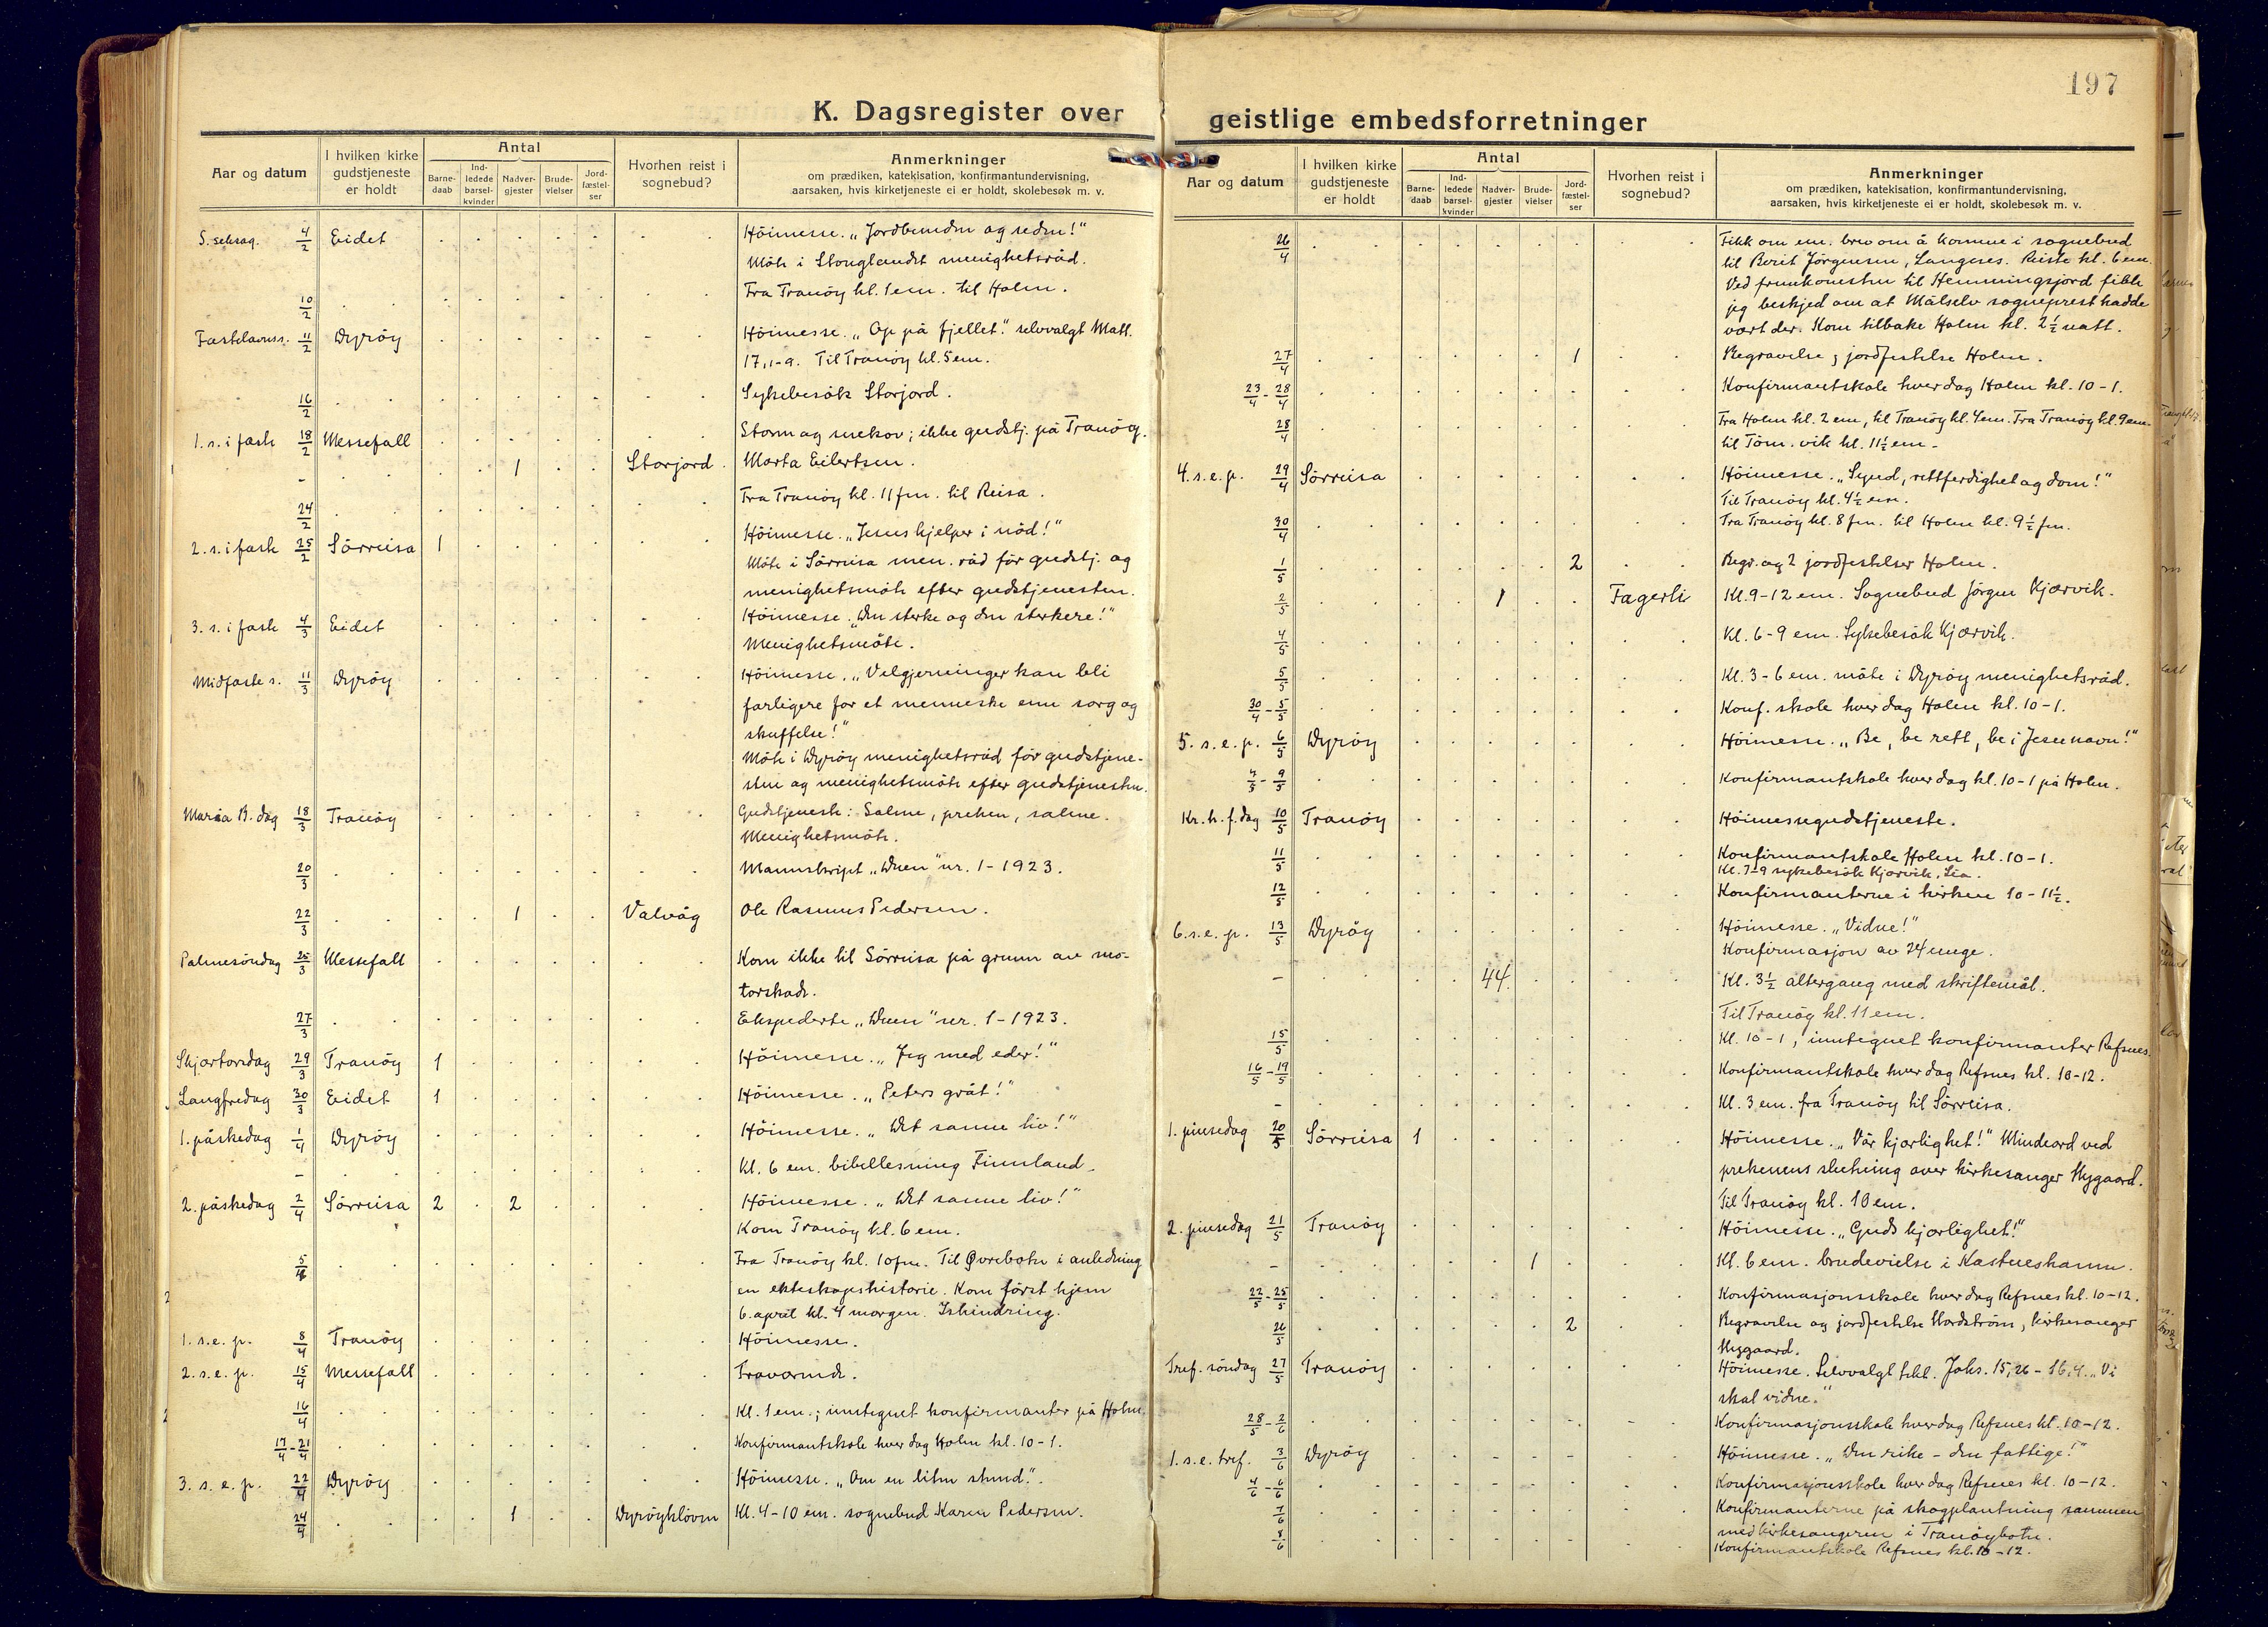 197
K. Dagsregister over
Aar og datum
I hvilken kirke gudstjeneste er holdt
Antal
Barne-daab
Ind-ledede barsel-kvinder
Nadver-gjester
Brude-vielser
Jord-fæstel-ser
Hvorhen reist i sognebud?
Anmerkninger
om prædiken, katekisation, konfirmantundervisning,
aarsaken, hvis kirketjeneste ei er holdt, skolebesøk m. v.
S. seksag. 4/2 Eidet Höimesse. „Jordbunden og seden!"
Möte i Stonglandet menighetsråd.
10/2 Fra Tranöy kl. 1 em. til Holm.
Fastelavnss. 11/2 Dyröy Höimesse. „Op på fjellet." selvvalgt Matt.
17,1-9. Til Tranöy kl. 5 em.
16/2 Sykebesök Storjord.
1. s. i faste 18/2 Messefall Storm og snekov; ikke gudstj. på Tranöy.
- 1 Storjord. Marta Eilertsen.
24/2 Fra Tranöy kl. 11 fm. til Reisa.
2. s. i faste 25/2 Sörreisa 1 Höimesse. „Jesus hjelper i nöd!"
Möte i Sörreisa men. råd för gudstj. og
menighetsmöte efter gudstjenesten.
3. s. i faste 4/3 Eidet Höimesse. „Den sterke og den sterkere!"
Menighetsmöte.
Midfaste s. 11/3 Dyröy Höimesse. „Velgjerninger kan bli
farligere for et menneske enn sorg og
skuffelse!"
Möte i Dyröy menighetsråd för gudstjene-
sten og menighetsmöte efter gudstjenesten.
Maria B. dag 18/3 Tranöy Gudstjeneste: Salme, preken, salme.
Menighetsmöte.
20/3 Manuskript „Duen" nr. 1-1923.
22/3 1 Valvåg Ole Rasmus Pedersen.
Palmesöndag 25/3 Messefall Kom ikke til Sörreisa på grunn av mo-
torskade.
27/3 Ekspederte „Duen" nr. 1-1923.
Skjærtorsdag 29/3 Tranöy 1 Höimesse. „Jeg med eder!"
Langfredag 30/3 Eidet 1 Höimesse. „Peters gråt!"
1. påskedag 1/4 Dyröy Höimesse. „Det sanne liv!"
- Kl. 6 em. bibellesning Finnland.
2. påskedag 2/4 Sörreisa 2 2 Höimesse. „Det sanne liv!"
Kom Tranöy kl. 6 em.
5/4 Fra Tranöy kl. 10 fm. Til Øvrebotn i anledning
en ekteskapshistorie. Kom först hjem
6. april kl. 4 morgen. Ishindring.
1. s. e. p. 8/4 Tranöy Höimesse.
2. s. e. p. 15/4 Messefall Fraværende.
16/4 Kl. 1 em.; inntegnet konfirmanter på Holm.
17/4-21/4 Konfirmantskole hver dag Holm kl. 10-1.
3. s. e. p. 22/4 Dyröy Höimesse. „Om en liten stund".
24/4 1 Dyröyklöven Kl. 4-10 em. sognebud Karen Pedersen.
geistlige embedsforretninger
Aar og datum
I hvilken kirke gudstjeneste er holdt
Antal
Barne-daab
Ind-ledede barsel-kvinder
Nadver-gjester
Brude-vielser
Jord-fæstel-ser
Hvorhen reist i sognebud?
Anmerkninger
om prædiken, katekisation, konfirmantundervisning,
aarsaken, hvis kirketjeneste ei er holdt, skolebesøk m. v.
26/4 Fikk om em. brev om å komme i sognebud
til Berit Jörgensen, Langnes. Reiste kl. 6 em.
Ved frunkonesten til Hemmingsjord fikk
jeg beskjed om at Målselv sogneprest hadde
vært der. Kom tilbake Holm kl. 2½ natt.
27/4 1 Begravelse; jordfestelse Holm.
23/4-28/4 Konfirmantskole hver dag Holm kl. 10-1.
28/4 Fra Holm kl. 2 em, til Tranöy kl. 4 em. Fra Tranöy kl. 9 em.
til Töm. vik kl. 11½ em.
4. s. e. p. 29/4 Sörreisa Höimesse. „Synd, rettferdighet og dom!"
Til Tranöy kl. 4½ em.
30/4 Fra Tranöy kl. 8 fm. til Holm kl. 9½ fm.
1/5 2 Begr. og 2 jordfestelser Holm.
2/5 1 Fagerli Kl. 9-12 em. Sognebud Jörgen Kjærvik.
4/5 Kl. 6-9 em. Sykebesök Kjærvik.
5/5 Kl. 3-6 em. möte i Dyröy menighetsråd.
30/4-5/5 Konf. skole hver dag Holm kl. 10-1.
5. s. e. p. 6/5 Dyröy Höimesse. „Be, be rett, be i Jesu navn!"
7/5-9/5 Konfirmantskole hver dag kl. 10-1 på Holm.
Kr. h. f. dag 10/5 Tranöy Höimessegudstjeneste.
11/5 Konfirmantskole Holm kl. 10-1.
Kl. 7-9 sykebesök Kjærvik, Lia.
12/5 Konfirmanterne i kirken 10-11½.
6. s. e. p. 13/5 Dyröy Höimesse. „Vidne!"
Konfirmasjon av 24 unge.
- 44 Kl. 3½ altergang med skriftemål.
Til Tranöy kl. 11 em.
15/5 Kl. 10-1, inntegnet konfirmanter Refsnes.
16/5-19/5 Konfirmantskole hver dag Refsnes kl. 10-12.
- Kl. 3 em. fra Tranöy til Sörreisa.
1. pinsedag 20/5 Sörreisa 1 Höimesse. „Vår kjærlighet!" Mindeord ved
prekenens slutning over kirkesanger Nygaard.
Til Tranöy kl. 10 em.
2. pinsedag 21/5 Tranöy Höimesse. „Guds kjærlighet!"
- 1 Kl. 6 em. brudevielse i Kastneshamn.
22/5-25/5 Konfirmasjonsskole hver dag Refsnes kl. 10-12.
26/5 2 Begravelse og jordfestelse Nordström, kirkesanger
Nygaard.
Tref. söndag 27/5 Tranöy Höimesse. Selvvalgt tekst. Johs. 15,26-16,4. „Vi
skal vidne."
28/5-2/6 Konfirmasjonsskole hver dag Refsnes kl. 10-12.
1. s. e. tref. 3/6 Dyröy Höimesse. „Den rike - den fattige!"
4/6-6/6 Konfirmasjonsskole hver dag Refsnes kl. 10-12.
7/6 Konfirmanterne på skogplantning sammen
med kirkesangeren i Tranöybotn.
8/6 Konfirmantskole Refsnes kl. 10-12.